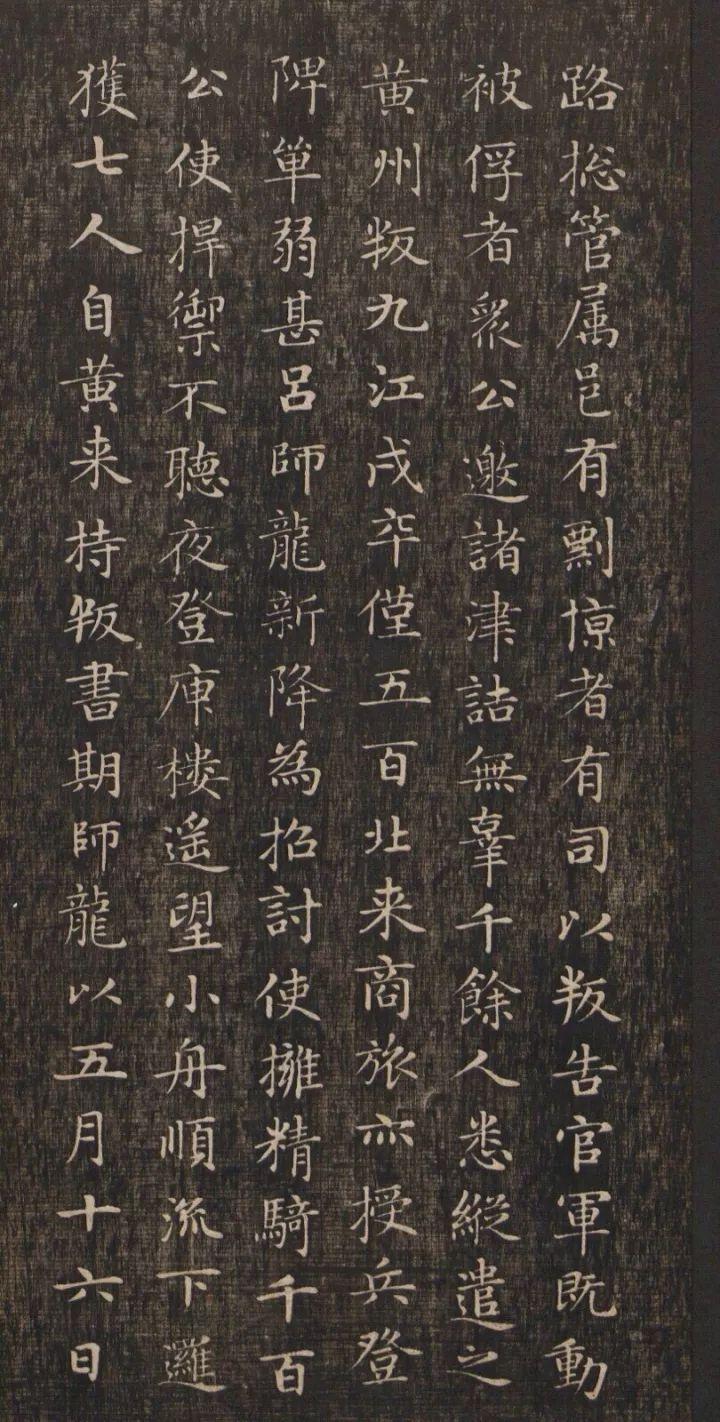 路揔管属邑有剽掠者有司以叛告官軍既動
被俘者衆公邀諸津詰無辜千餘人悉縱遣之
黄州叛九江戍卒僅五百北来商旅亦授兵登
陴単弱甚呂師龍新降為招討使擁精騎千百
公使捍禦不聽夜登庾樓遥望小舟順流下邏
獲七人自黄来持叛書期師龍以五月十六日